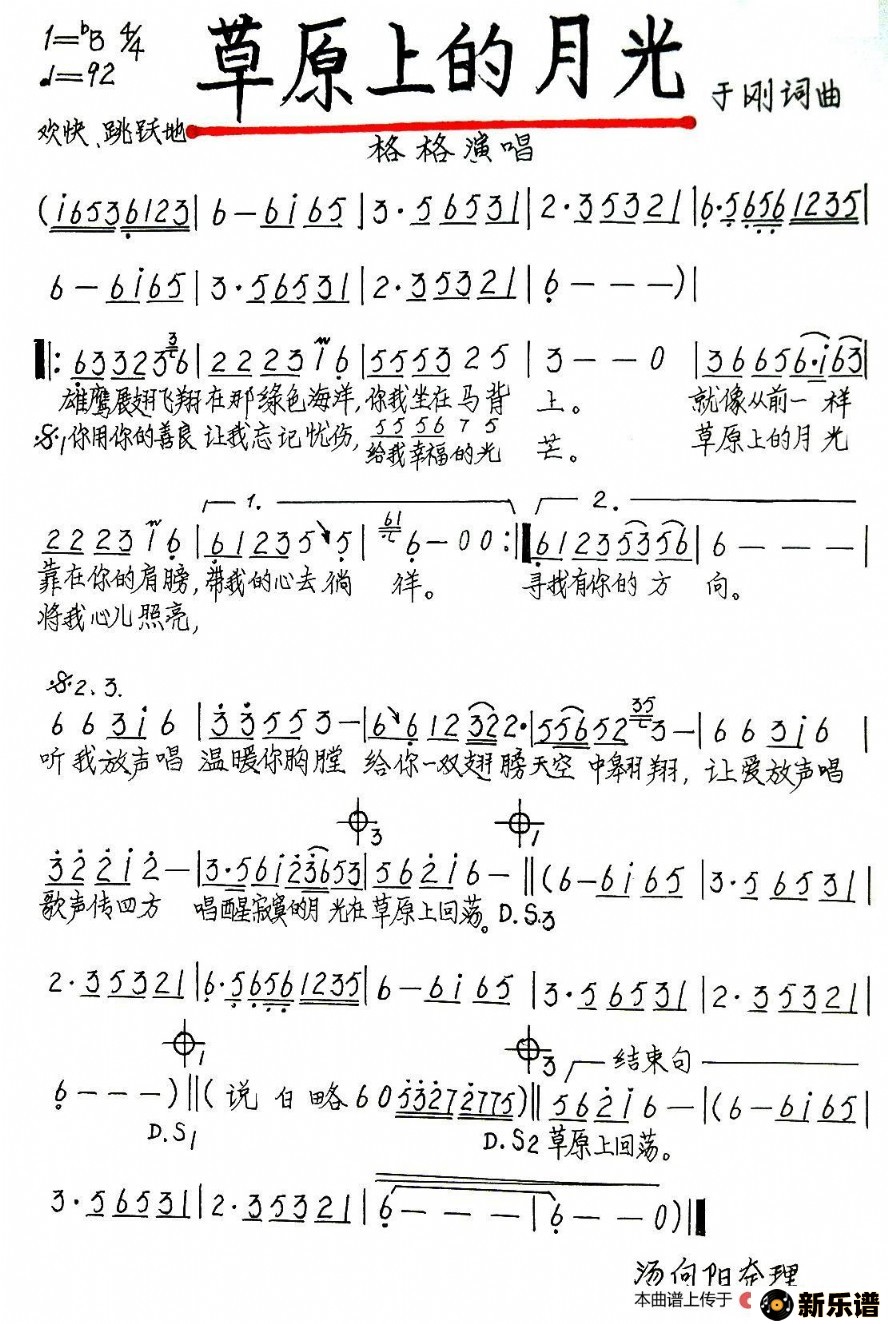 1=ᵇB 4/4
♩=92
草原上的月光
于刚词曲
欢快、跳跃地
格格演唱
(i6536123|6-6i65|3·56531|2·35321|6·5656 1235|
6-6i65|3·56531|2·35321|6---)|
‖:6332356|22231̇6|555325|3--0|366656·i63|
雄鹰展翅飞翔在那绿色海洋,你我坐在马背 上。 就像从前一样
𝄋1你用你的善良让我忘记忧伤, 55 56 7 5 给我幸福的光 芒。 草原上的月光
1. 2.
2223i6|6123555|6-00:‖6123535 6|6---|
靠在你的肩膀,带我的心去徜 徉。 寻找有你的方 向。
将我心儿照亮,
𝄋2、3.
663i6|33553-|66 12 322·|5565 2 3-|663i6|
听我放声唱 温暖你胸膛 给你一双翅膀天空中翱翔, 让爱放声唱
3
1
322i2-|3·56i23653|562i6-‖(6-6i65|3·56531|
歌声传四方 唱醒寂寞的月光在草原上回荡。D.S.3
2·35321|6·5656 1235|6-6i65|3·56531|2·35321|
1
3
结束句
6---)‖(说白略 60 5327 2775)‖562i6-|(6-6i65|
D.S1 D.S2 草原上回荡。
3·56531|2·35321|6---|6--0)‖
汤向阳奉理
本曲谱上传于 新乐谱